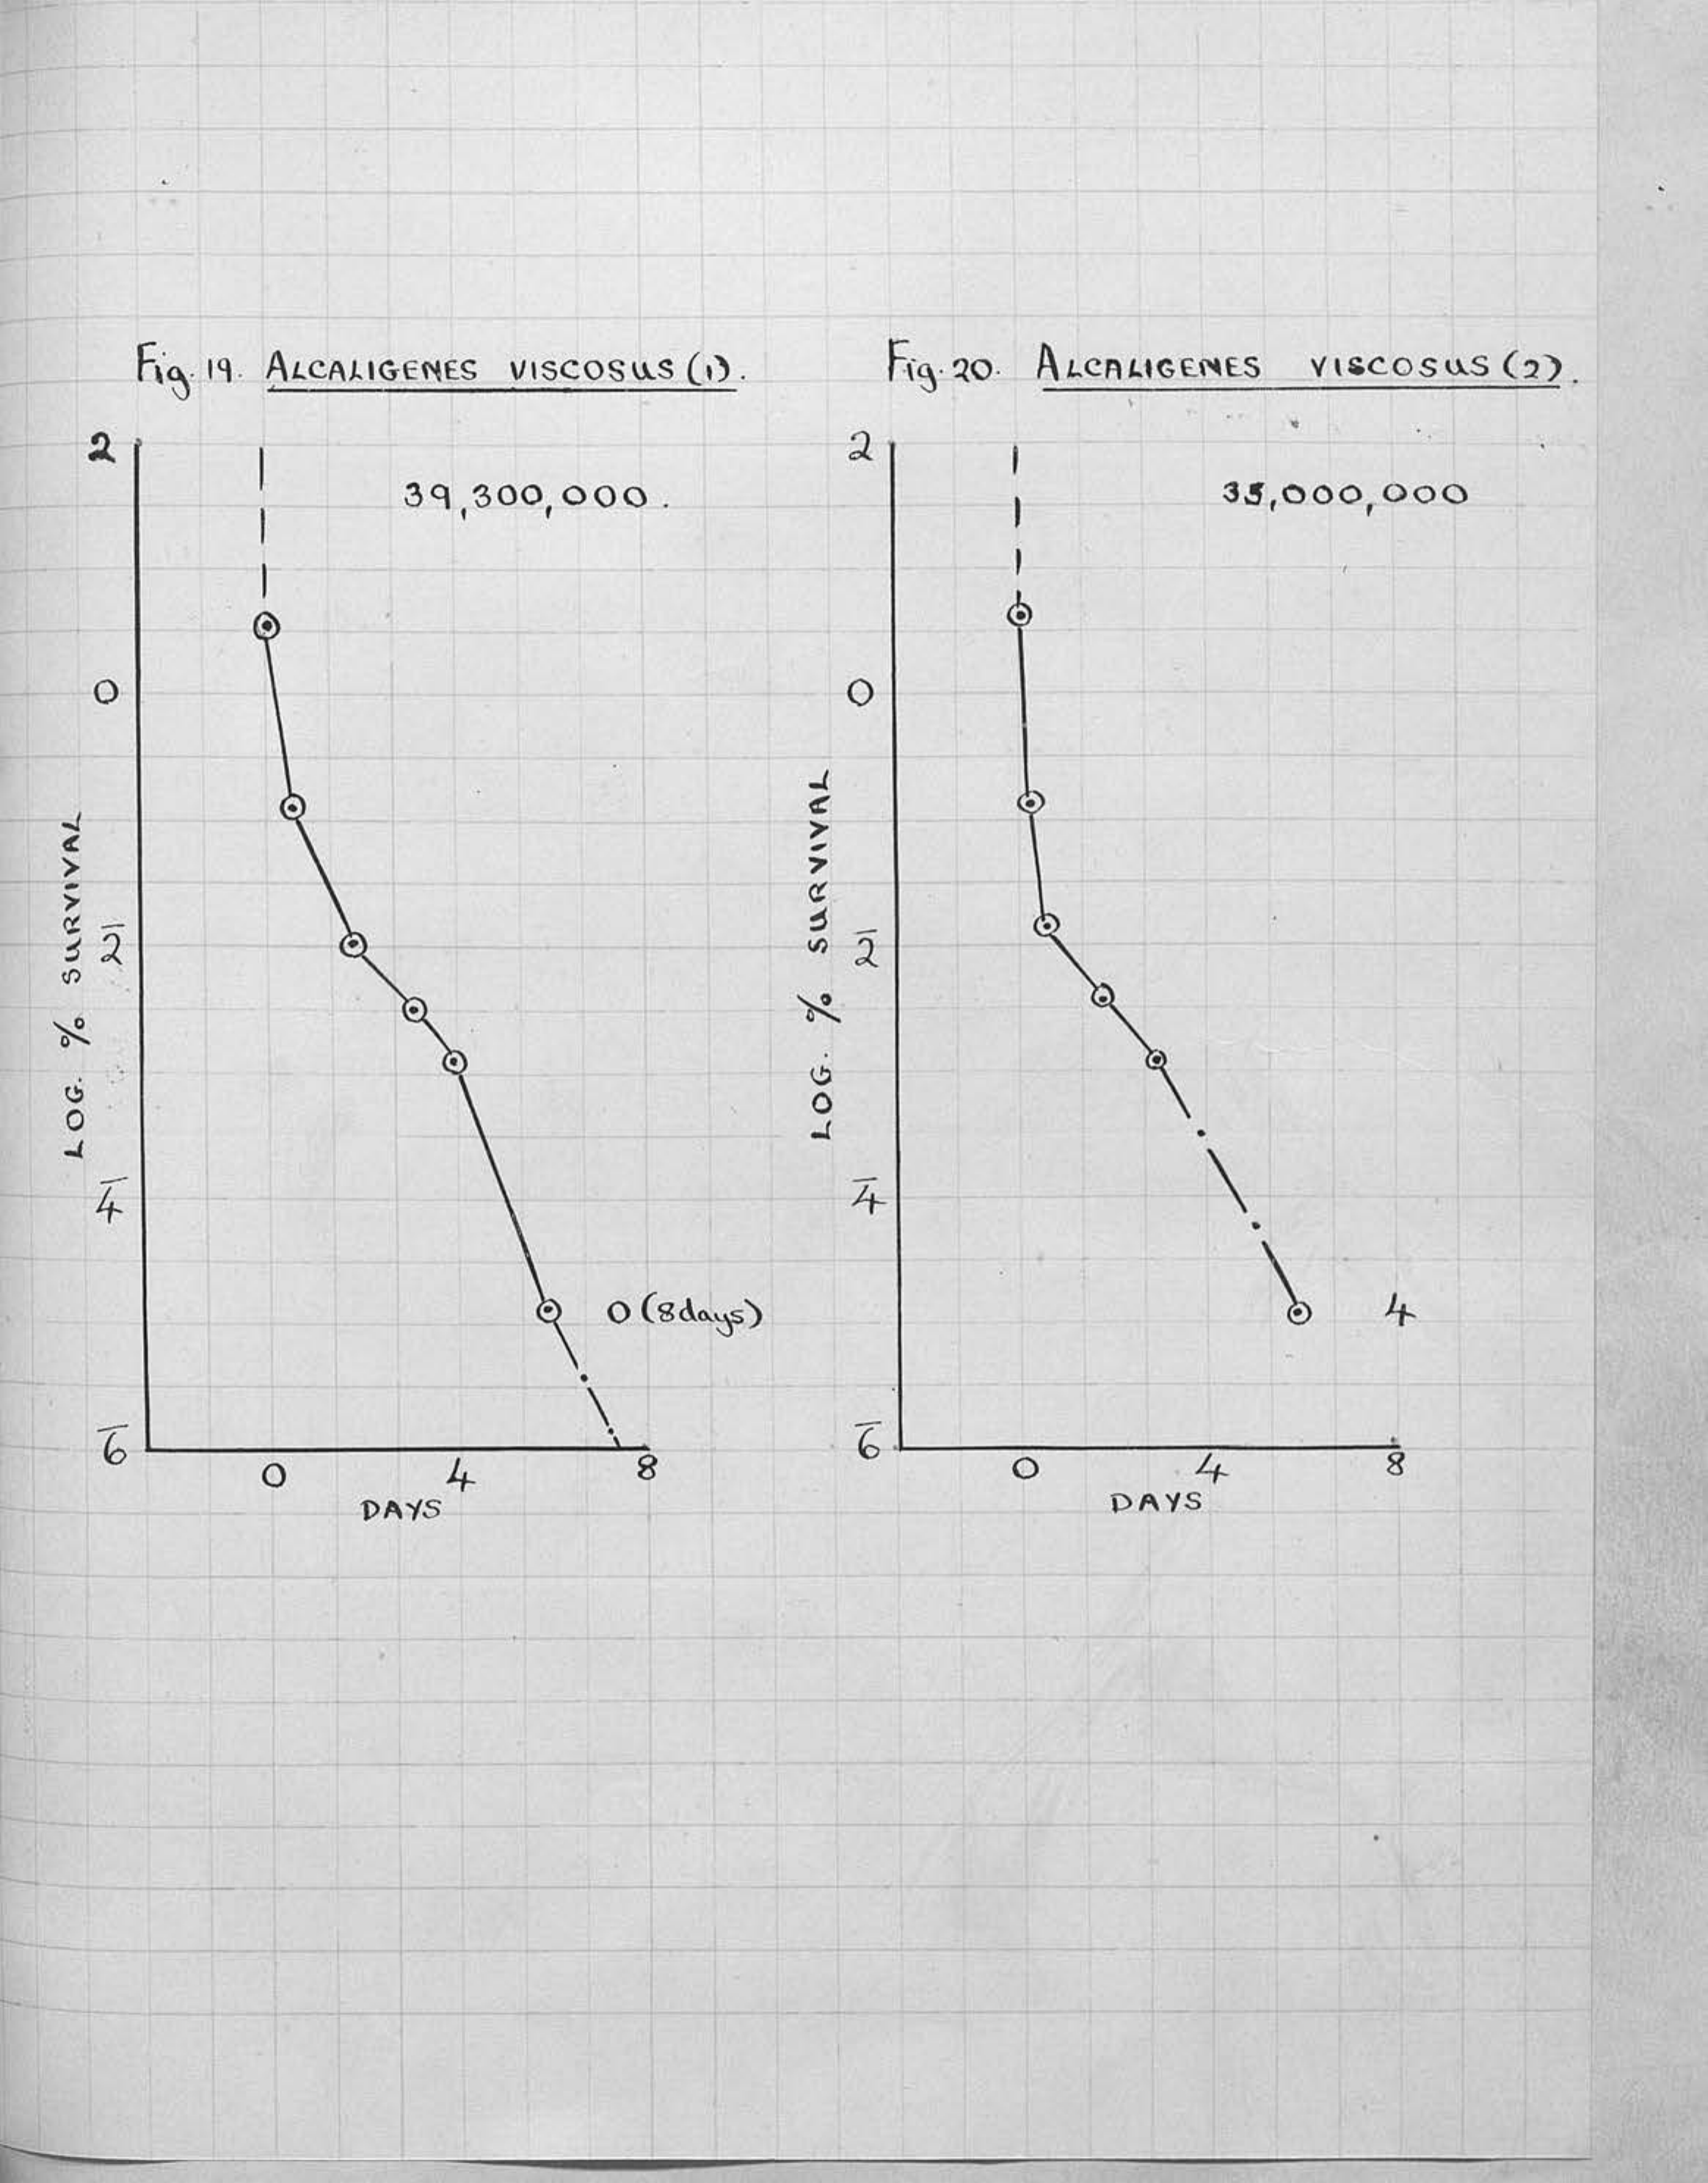 Fig. 19. ALCALIGENES VISCOSUS (1).
2
39,300,000.
0
LOG. % SURVIVAL
2̅
4̅
0 (8 days)
6̅
0 4 8
DAYS
Fig. 20. ALCALIGENES VISCOSUS (2).
2
35,000,000
0
LOG. % SURVIVAL
2̅
4̅
4
6̅
0 4 8
DAYS